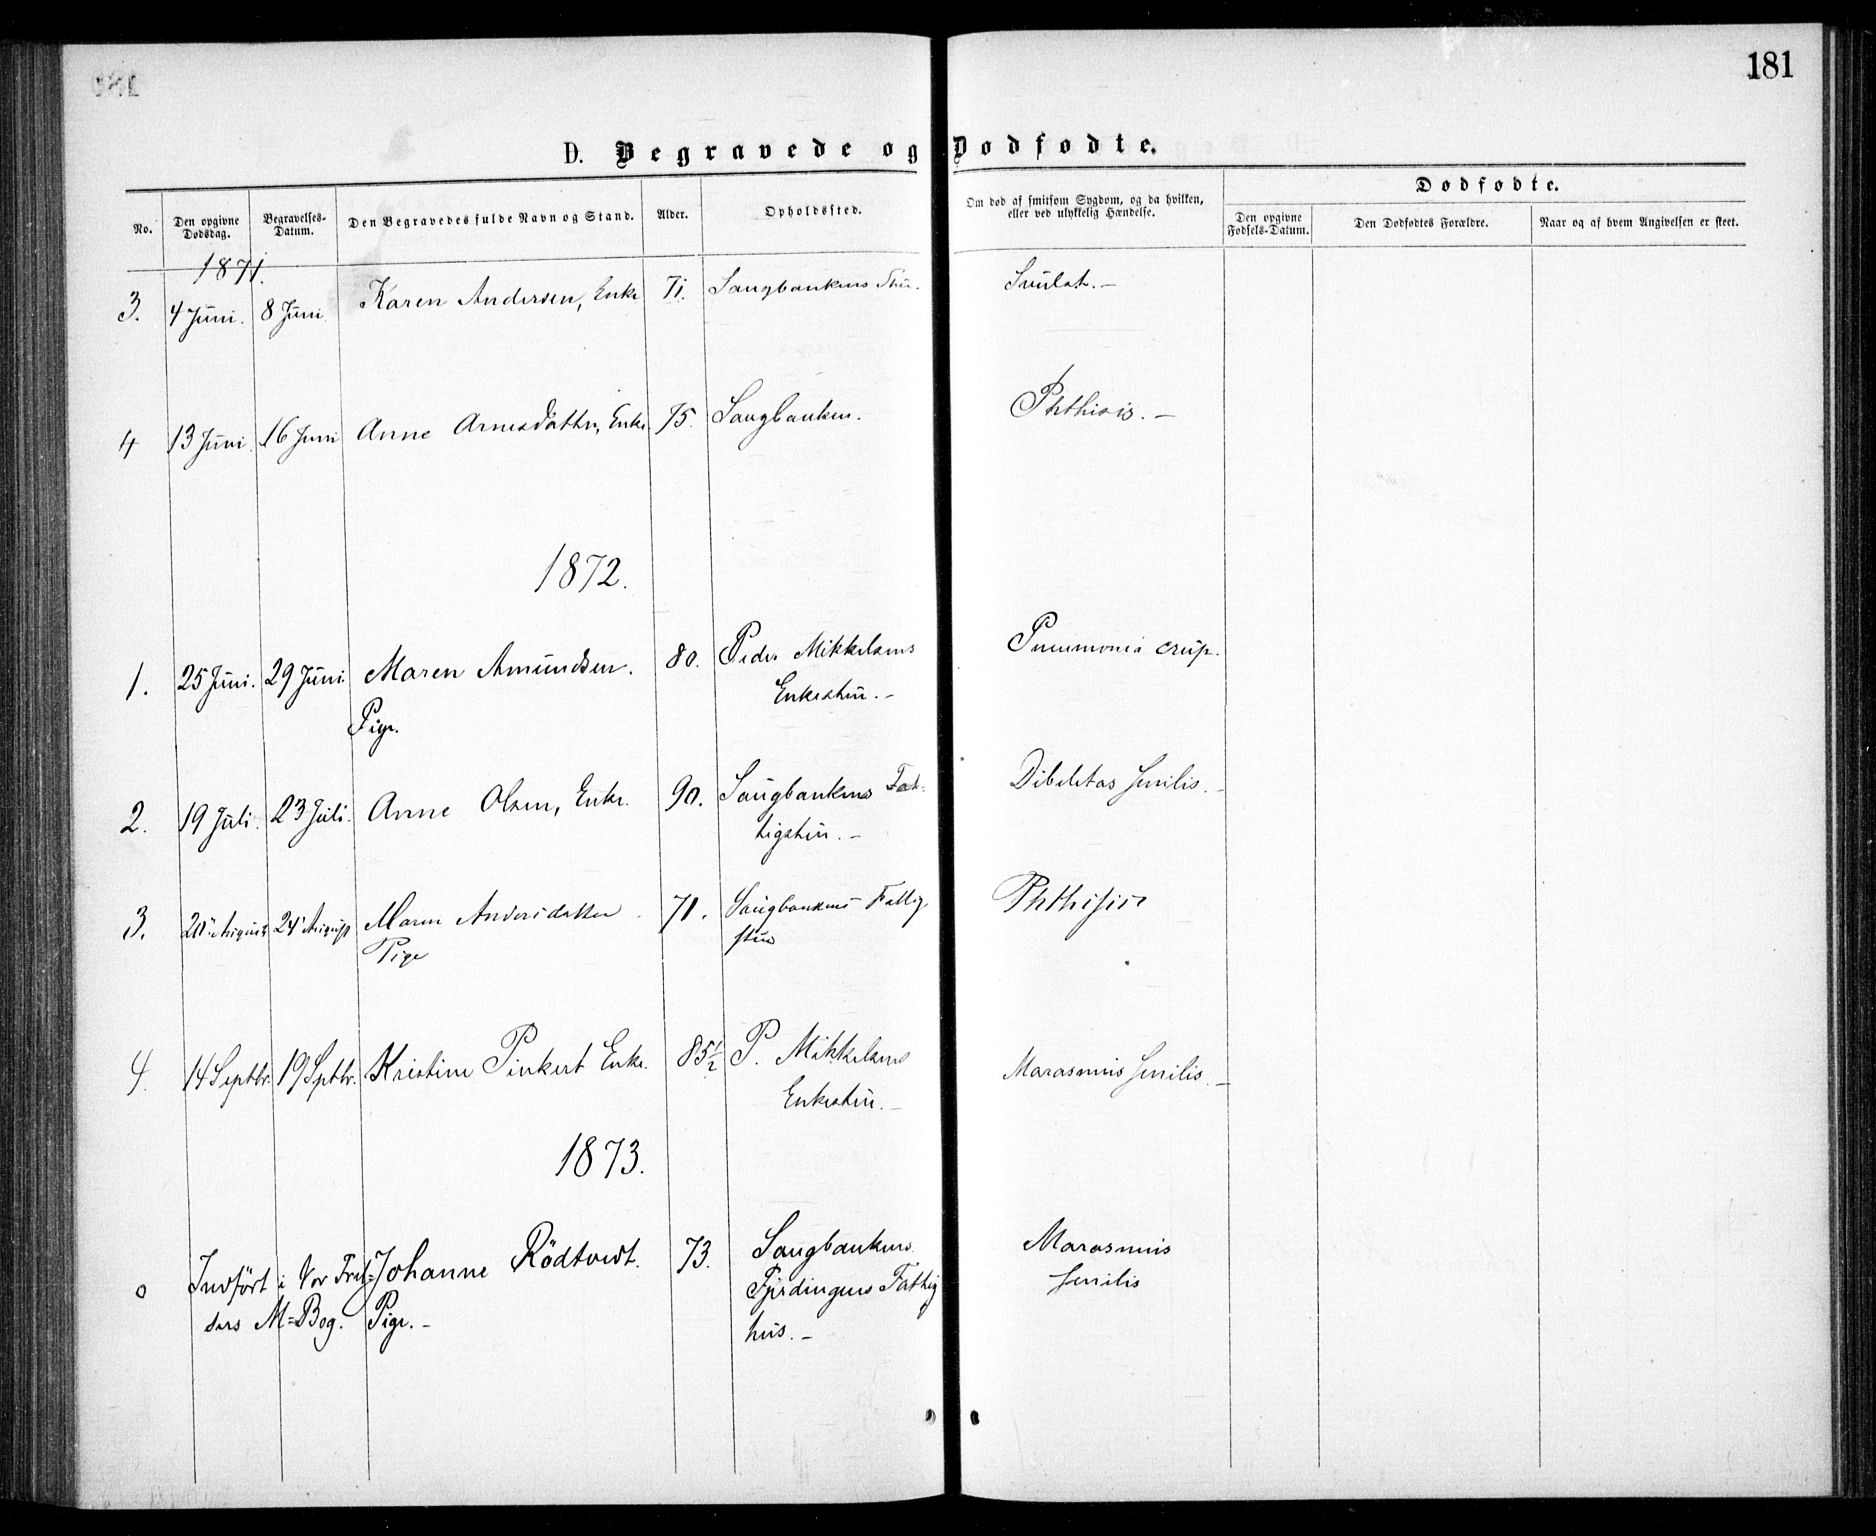 181
D. Begravede og Dødfødte.
No. Den opgivne Dødsdag. Begravelses-Datum. Den Begravedes fulde Navn og Stand. Alder. Opholdssted. Om død af smitsom Sygdom, og da hvilken, eller ved ulykkelig Hændelse. Dødfødte.
Den opgivne Fødsels-Datum. Den Dødfødtes Forældre. Naar og af hvem Angivelsen er skeet.
1871.
3. 4 Juni. 8 Juni Karen Andersen, Enke 71. Saugbankens Svulst. –
4 13 Juni. 16 Juni Anne Arnesdatter, Enke 75. Saugbanken. Phthisis. –
1872.
1. 25 Juni. 29 Juni. Maren Amundsen. 80. Peder Mikkelsens Pneumonia crup.
Pige. Enkestiu. –
2. 19 Juli. 23 Juli. Anne Olsen, Enke. 90. Saugbankens Fat- Dibeletas senilis. –
tigstiu. –
3. 20 August 24 August Maren Andersdatter 71. Saugbankens Fattig- Phthisis
Pige stiu
4. 14 Septbr. 19 Septbr. Kristine Pinkert Enke. 85 1/2 P. Mikkelsens Marasmus senilis. –
Enkestiu. –
1873.
o Indført i Vor Frel- Johanne Rödtvedt. 73. Saugbankens Marasmus
sers M=Bog. Pige. – Fjerdingens Fattig senilis
hus. –